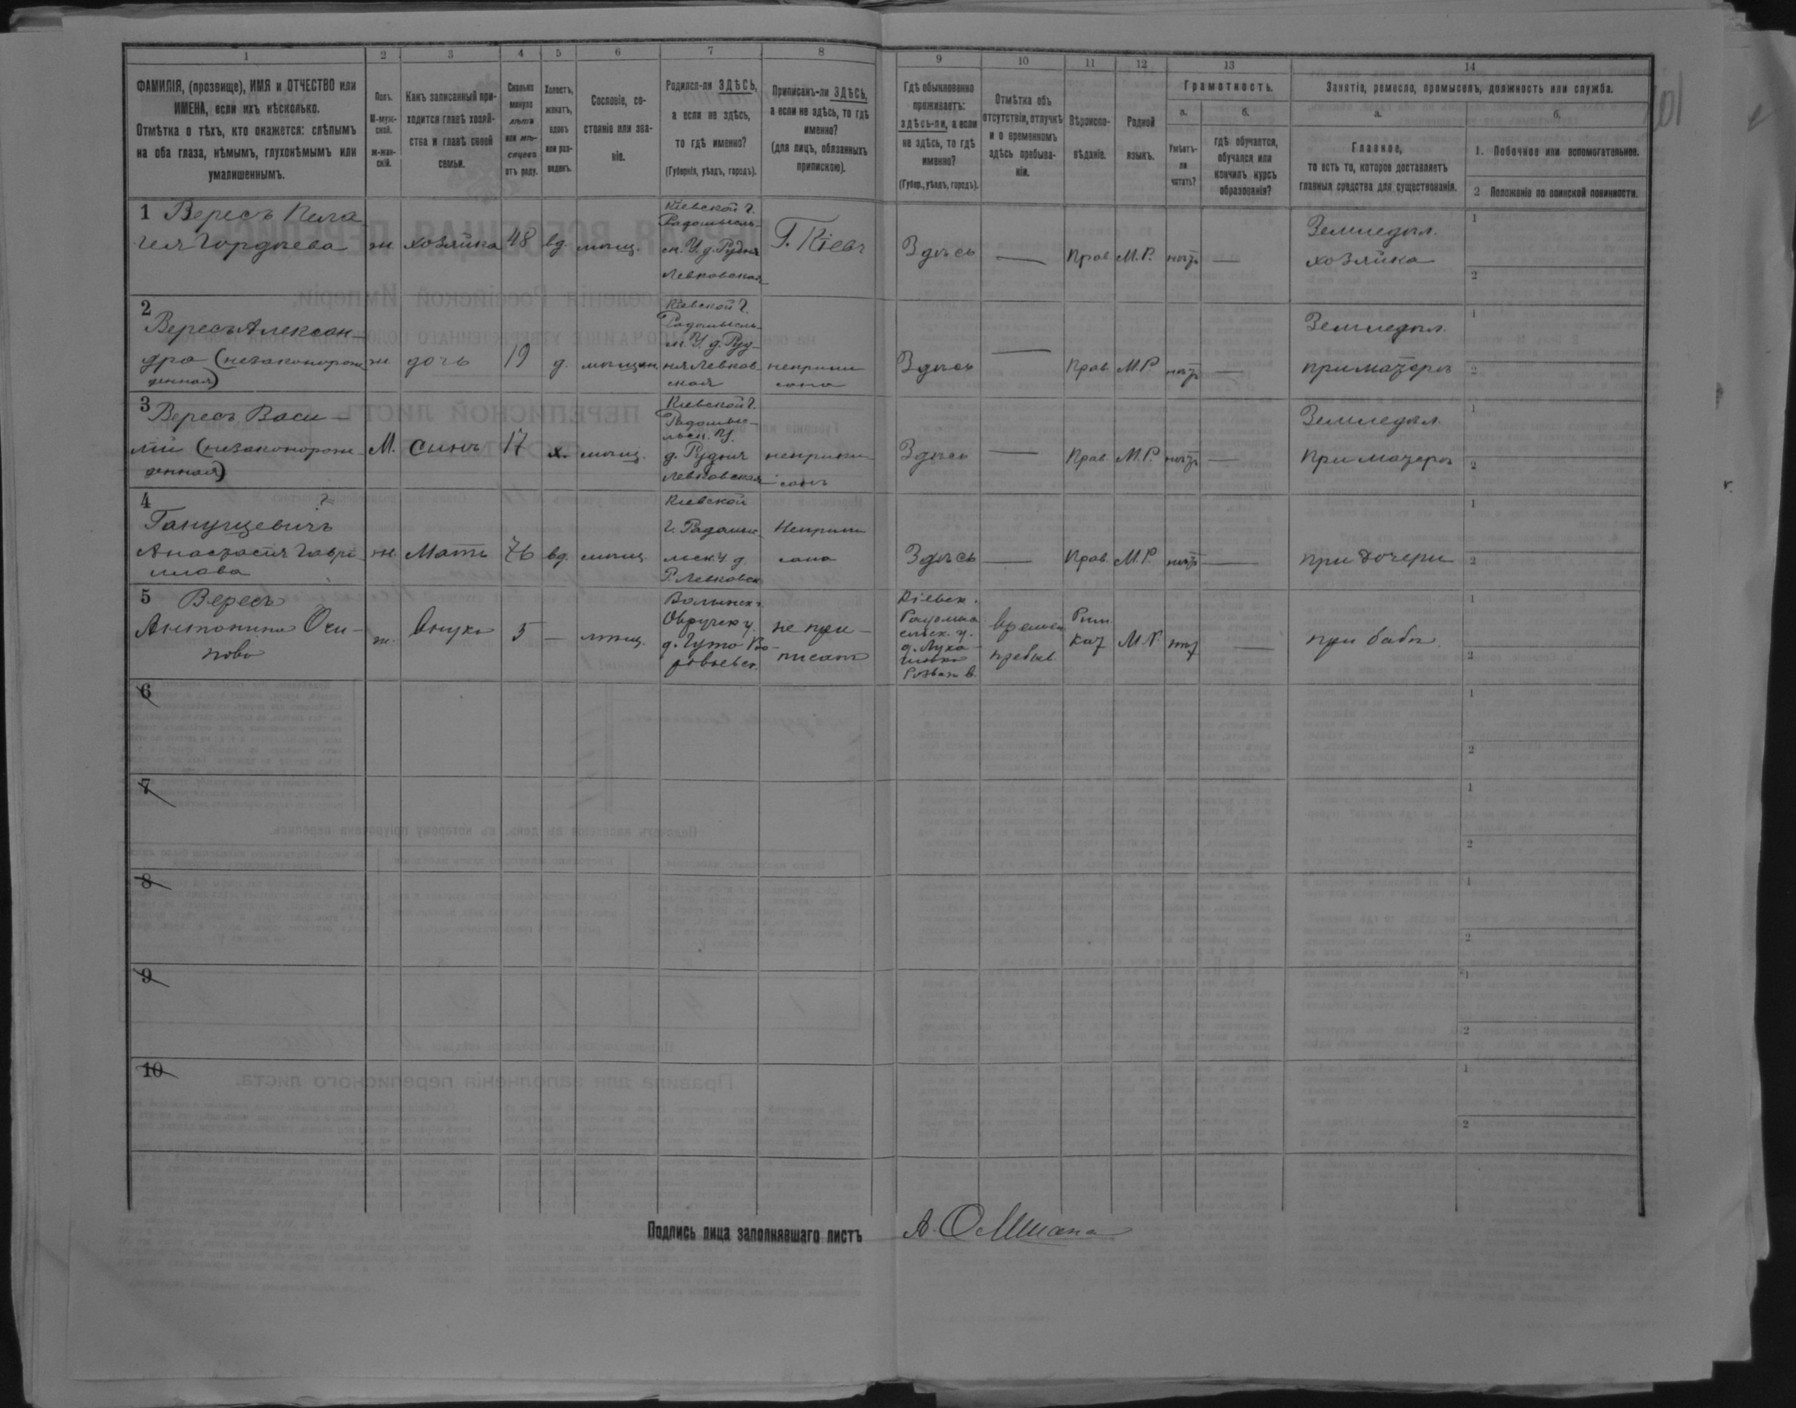 1 2 3 4 5 6 7 8 9 10 11 12 13 14
ФАМИЛІЯ, (прозвище), ИМЯ и ОТЧЕСТВО или
ИМЕНА, если ихъ нѣсколько.
Отмѣтка о тѣхъ, кто окажется: слѣпымъ
на оба глаза, нѣмымъ, глухонѣмымъ или
умалишеннымъ.
Полъ.
М-муж-
ской.
Ж-жен-
скій.
Какъ записанный при-
ходится главѣ хозяй-
ства и главѣ своей
семьи.
Сколько
минуло
лѣтъ
или мѣ-
сяцевъ
отъ роду.
Холостъ,
женатъ,
вдовъ
или раз-
веденъ.
Сословіе, со-
стояніе или зва-
ніе.
Родился-ли ЗДѢСЬ,
а если не здѣсь,
то гдѣ именно?
(Губернія, уѣздъ, городъ).
Приписанъ-ли ЗДѢСЬ,
а если не здѣсь, то гдѣ
именно?
(для лицъ, обязанныхъ
припискою).
Гдѣ обыкновенно
проживаетъ:
здѣсь-ли, а если
не здѣсь, то гдѣ
именно?
(Губер., уѣздъ, городъ).
Отмѣтка объ
отсутствіи, отлучкѣ
и о временномъ
здѣсь пребыва-
ніи.
Вѣроиспо-
вѣданіе.
Родной
языкъ.
Грамотность.
а.
Умѣетъ-
ли
читать?
б.
гдѣ обучается,
обучался или
кончилъ курсъ
образованія?
Занятіе, ремесло, промыселъ, должность или служба.
а.
Главное,
то есть то, которое доставляетъ
главныя средства для существованія.
б.
1. Побочное или вспомогательное.
2 Положеніе по воинской повинности.
1 Вересъ Пела
гія Гордѣева
ж
хозяйка
48
вд.
мѣщ.
Кіевской Г.
Радомысль-
ск. У. д. Рудня
Левковская
Г. Кіевъ
Здѣсь
—
Прав.
М.Р.
нѣтъ
—
Земледѣл.
хозяйка
1
2
2
Вересъ Алексан-
дра (незаконорож
денная)
ж
дочь
19
д.
мѣщан.
Кіевской Г.
Радомысль-
ск. У. д. Руд-
ня Левков
ская
неприпи
сана
Здѣсь
—
Прав.
М.Р
нѣтъ
—
Земледѣл.
при матери
1
2
3
Вересъ Васи-
лій (незаконорож-
денная)
М.
сынъ
17
х.
мѣщ.
Кіевской Г.
Радомыс-
льск. У.
д. Рудня
Левковская
неприпи-
санъ
Здѣсь
—
Прав.
М.Р.
нѣтъ
—
Земледѣл.
при матери
1
2
4 ?
Анастасія Гаври
илова
ж.
Мать
76
вд.
мѣщ.
Кіевской
Г. Радомы
льск. У. д.
Р. Левковск.
Неприпи
сана
Здѣсь
—
Прав.
М.Р.
нѣтъ
—
при дочери
1
2
5
Вересъ
Антонина Оси-
пова
ж.
Внука
5
—
мѣщ.
Волынск.
Овручск у.
не при-
писана
Кіевск.
Радомы
сльск. у.
времен.
пребыв.
Рим.
Кат
М Р
нѣт
—
при бабѣ
1
2
6
1
2
7
1
2
8
1
2
9
1
2
10
1
2
Подпись лица заполнявшаго листъ